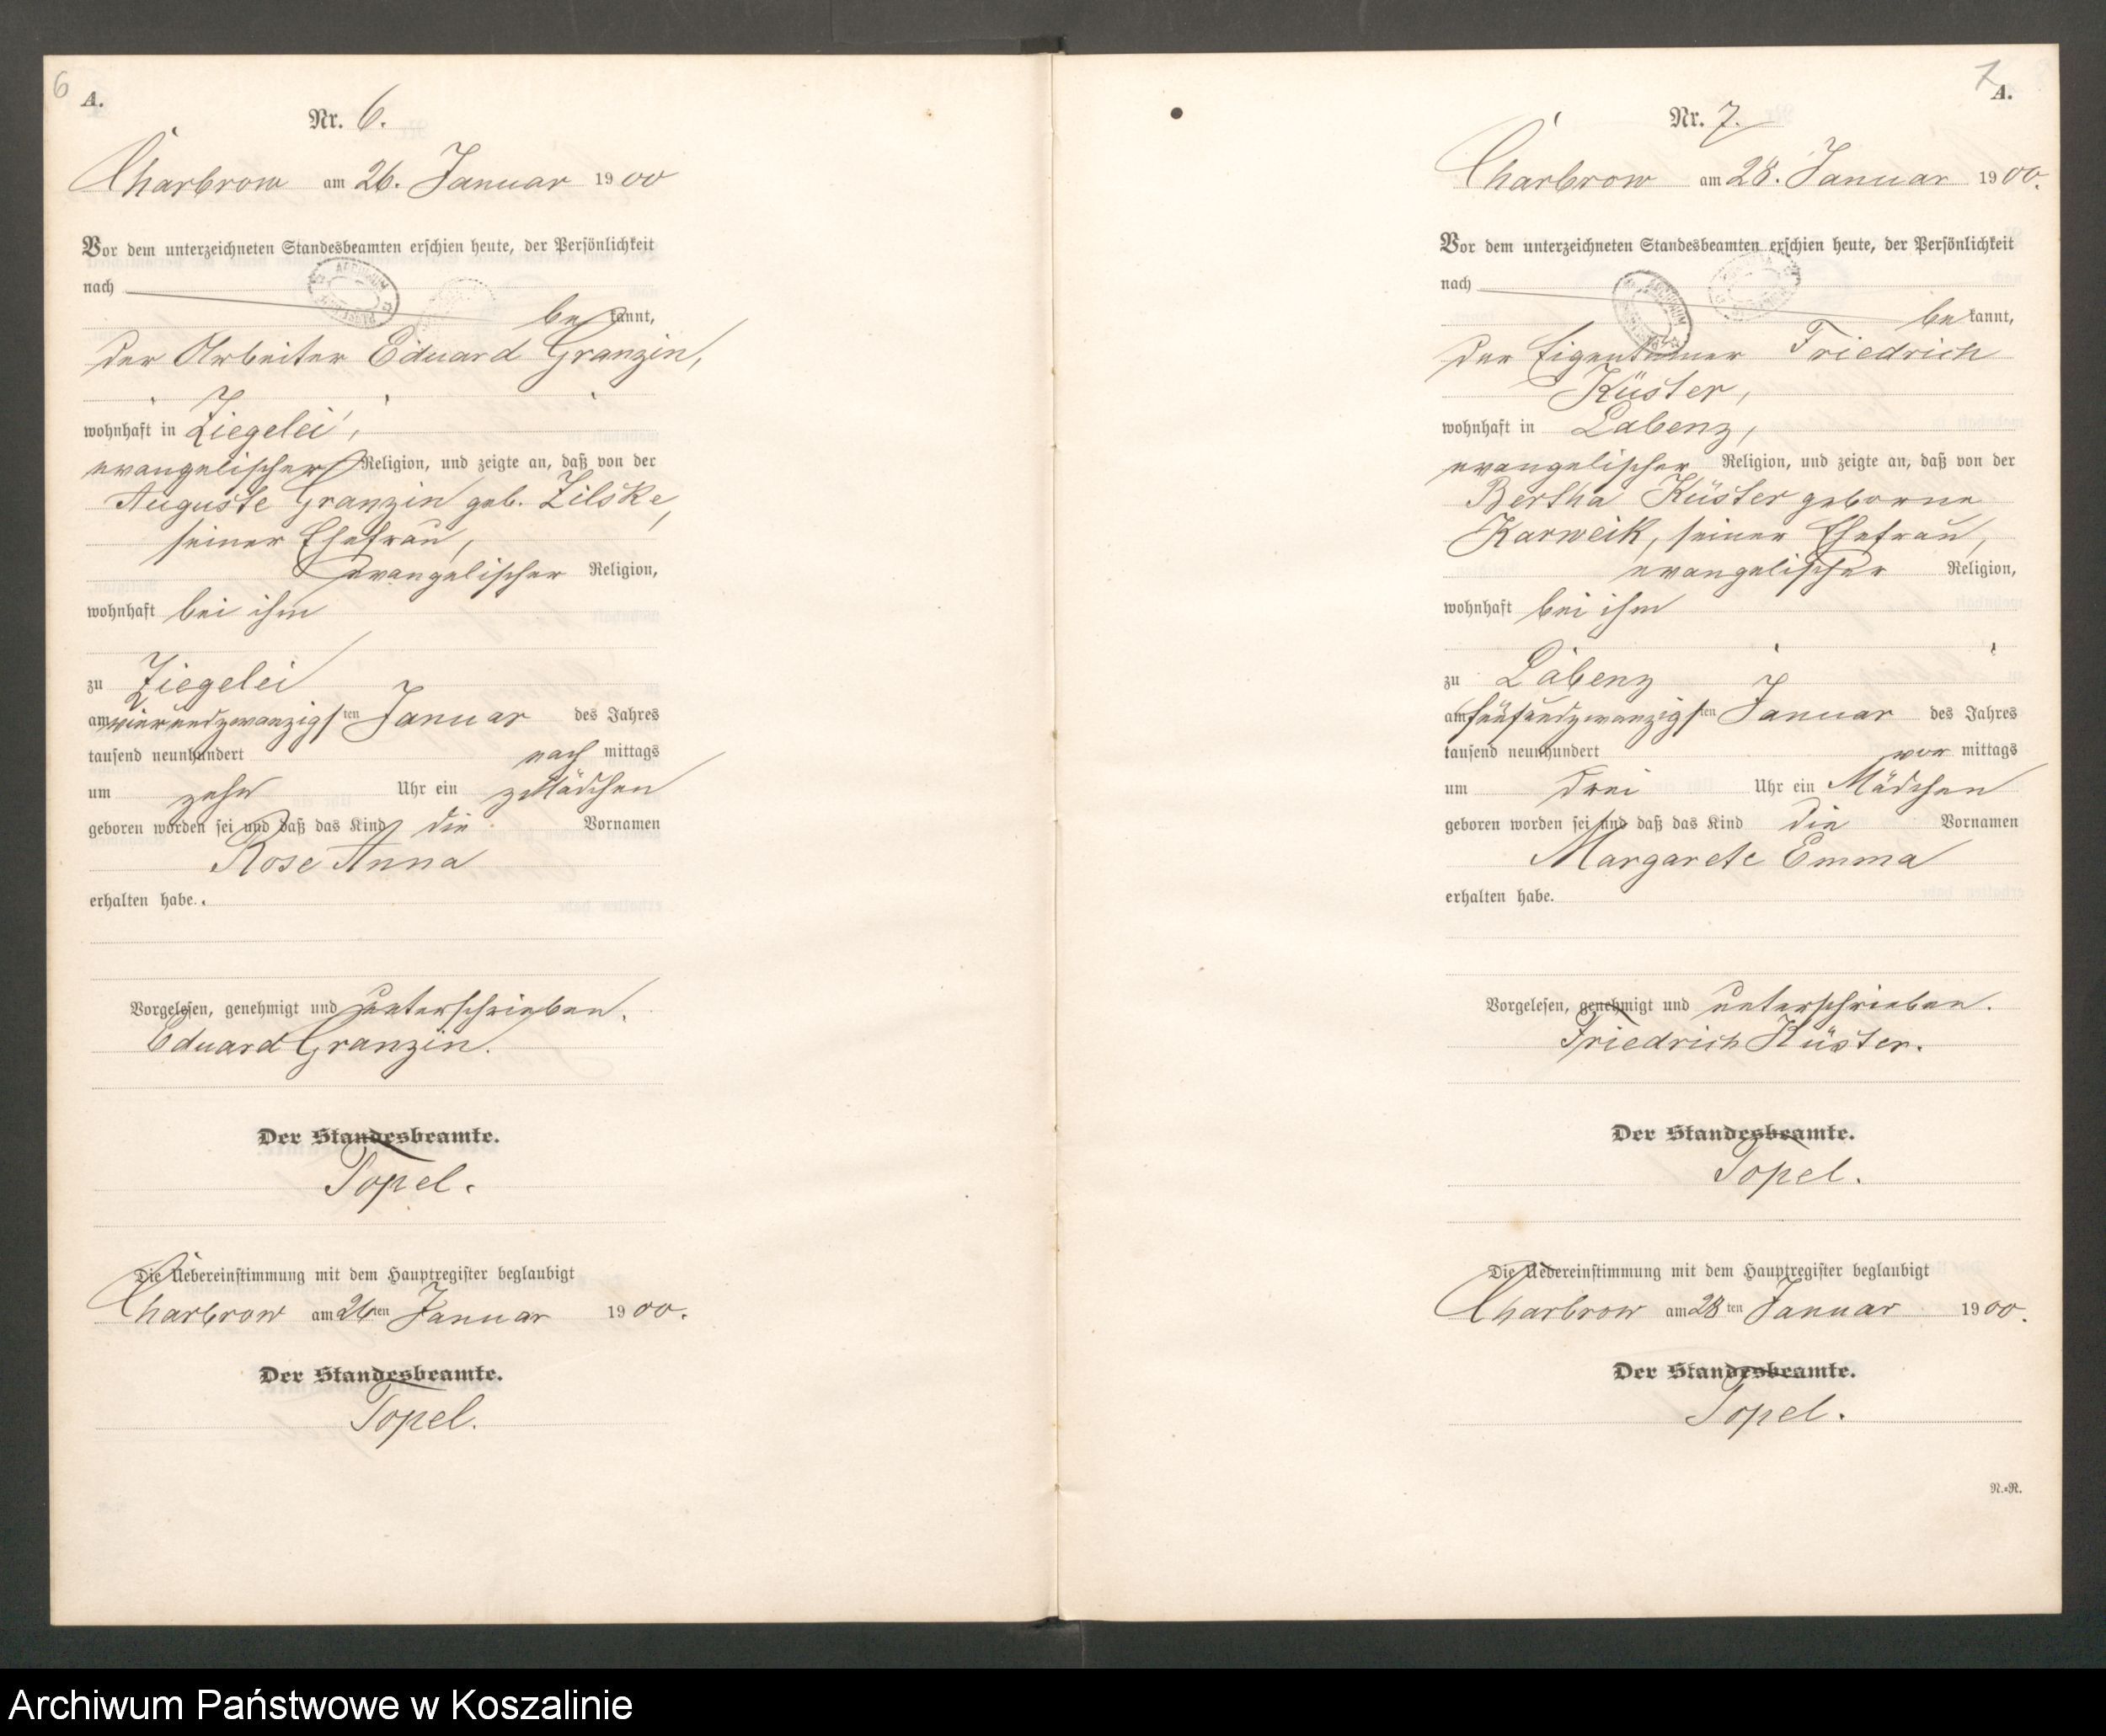 6
A.
Nr. 6.
Charbrow am 26. Januar 1900
Vor dem unterzeichneten Standesbeamten erschien heute, der Persönlichkeit
nach
bekannt,
der Arbeiter Eduard Granzin,
wohnhaft in Ziegelei,
evangelischer Religion, und zeigte an, daß von der
Auguste Granzin geb. Zilske,
seiner Ehefrau,
evangelischer Religion,
wohnhaft bei ihm
zu Ziegelei
am vierundzwanzigsten Januar des Jahres
tausend neunhundert nach mittags
um zehn Uhr ein Mädchen
geboren worden sei und daß das Kind die Vornamen
Rose Anna
erhalten habe.
Vorgelesen, genehmigt und unterschrieben.
Eduard Granzin.
Der Standesbeamte.
Topel.
Die Uebereinstimmung mit dem Hauptregister beglaubigt
Charbrow am 26ten Januar 1900.
Der Standesbeamte.
Topel.
7
A.
Nr. 7.
Charbrow am 28. Januar 1900.
Vor dem unterzeichneten Standesbeamten erschien heute, der Persönlichkeit
nach
bekannt,
der Eigentümer Friedrich
Küster,
wohnhaft in Labenz,
evangelischer Religion, und zeigte an, daß von der
Bertha Küster geborne
Karweik, seiner Ehefrau,
evangelischer Religion,
wohnhaft bei ihm
zu Labenz
am fünfundzwanzigsten Januar des Jahres
tausend neunhundert vor mittags
um drei Uhr ein Mädchen
geboren worden sei und daß das Kind die Vornamen
Margarete Emma
erhalten habe.
Vorgelesen, genehmigt und unterschrieben.
Friedrich Küster.
Der Standesbeamte.
Topel.
Die Uebereinstimmung mit dem Hauptregister beglaubigt
Charbrow am 28ten Januar 1900.
Der Standesbeamte.
Topel.
N.=R.
Archiwum Państwowe w Koszalinie